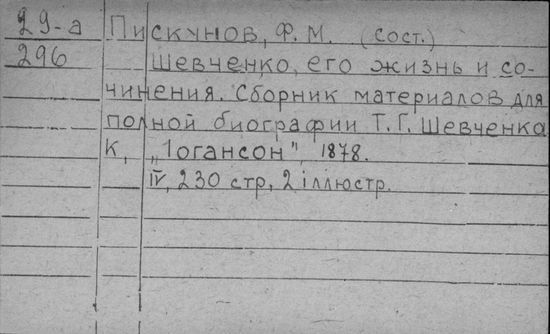 29-а Пискунов, Ф. М. (сост.)
296 Шевченко, его жизнь и со-
чинения. Сборник материалов для
полной биографии Т. Г. Шевченка
К, „Іогансон", 1878.
IV, 230 стр, 2 іллюстр.